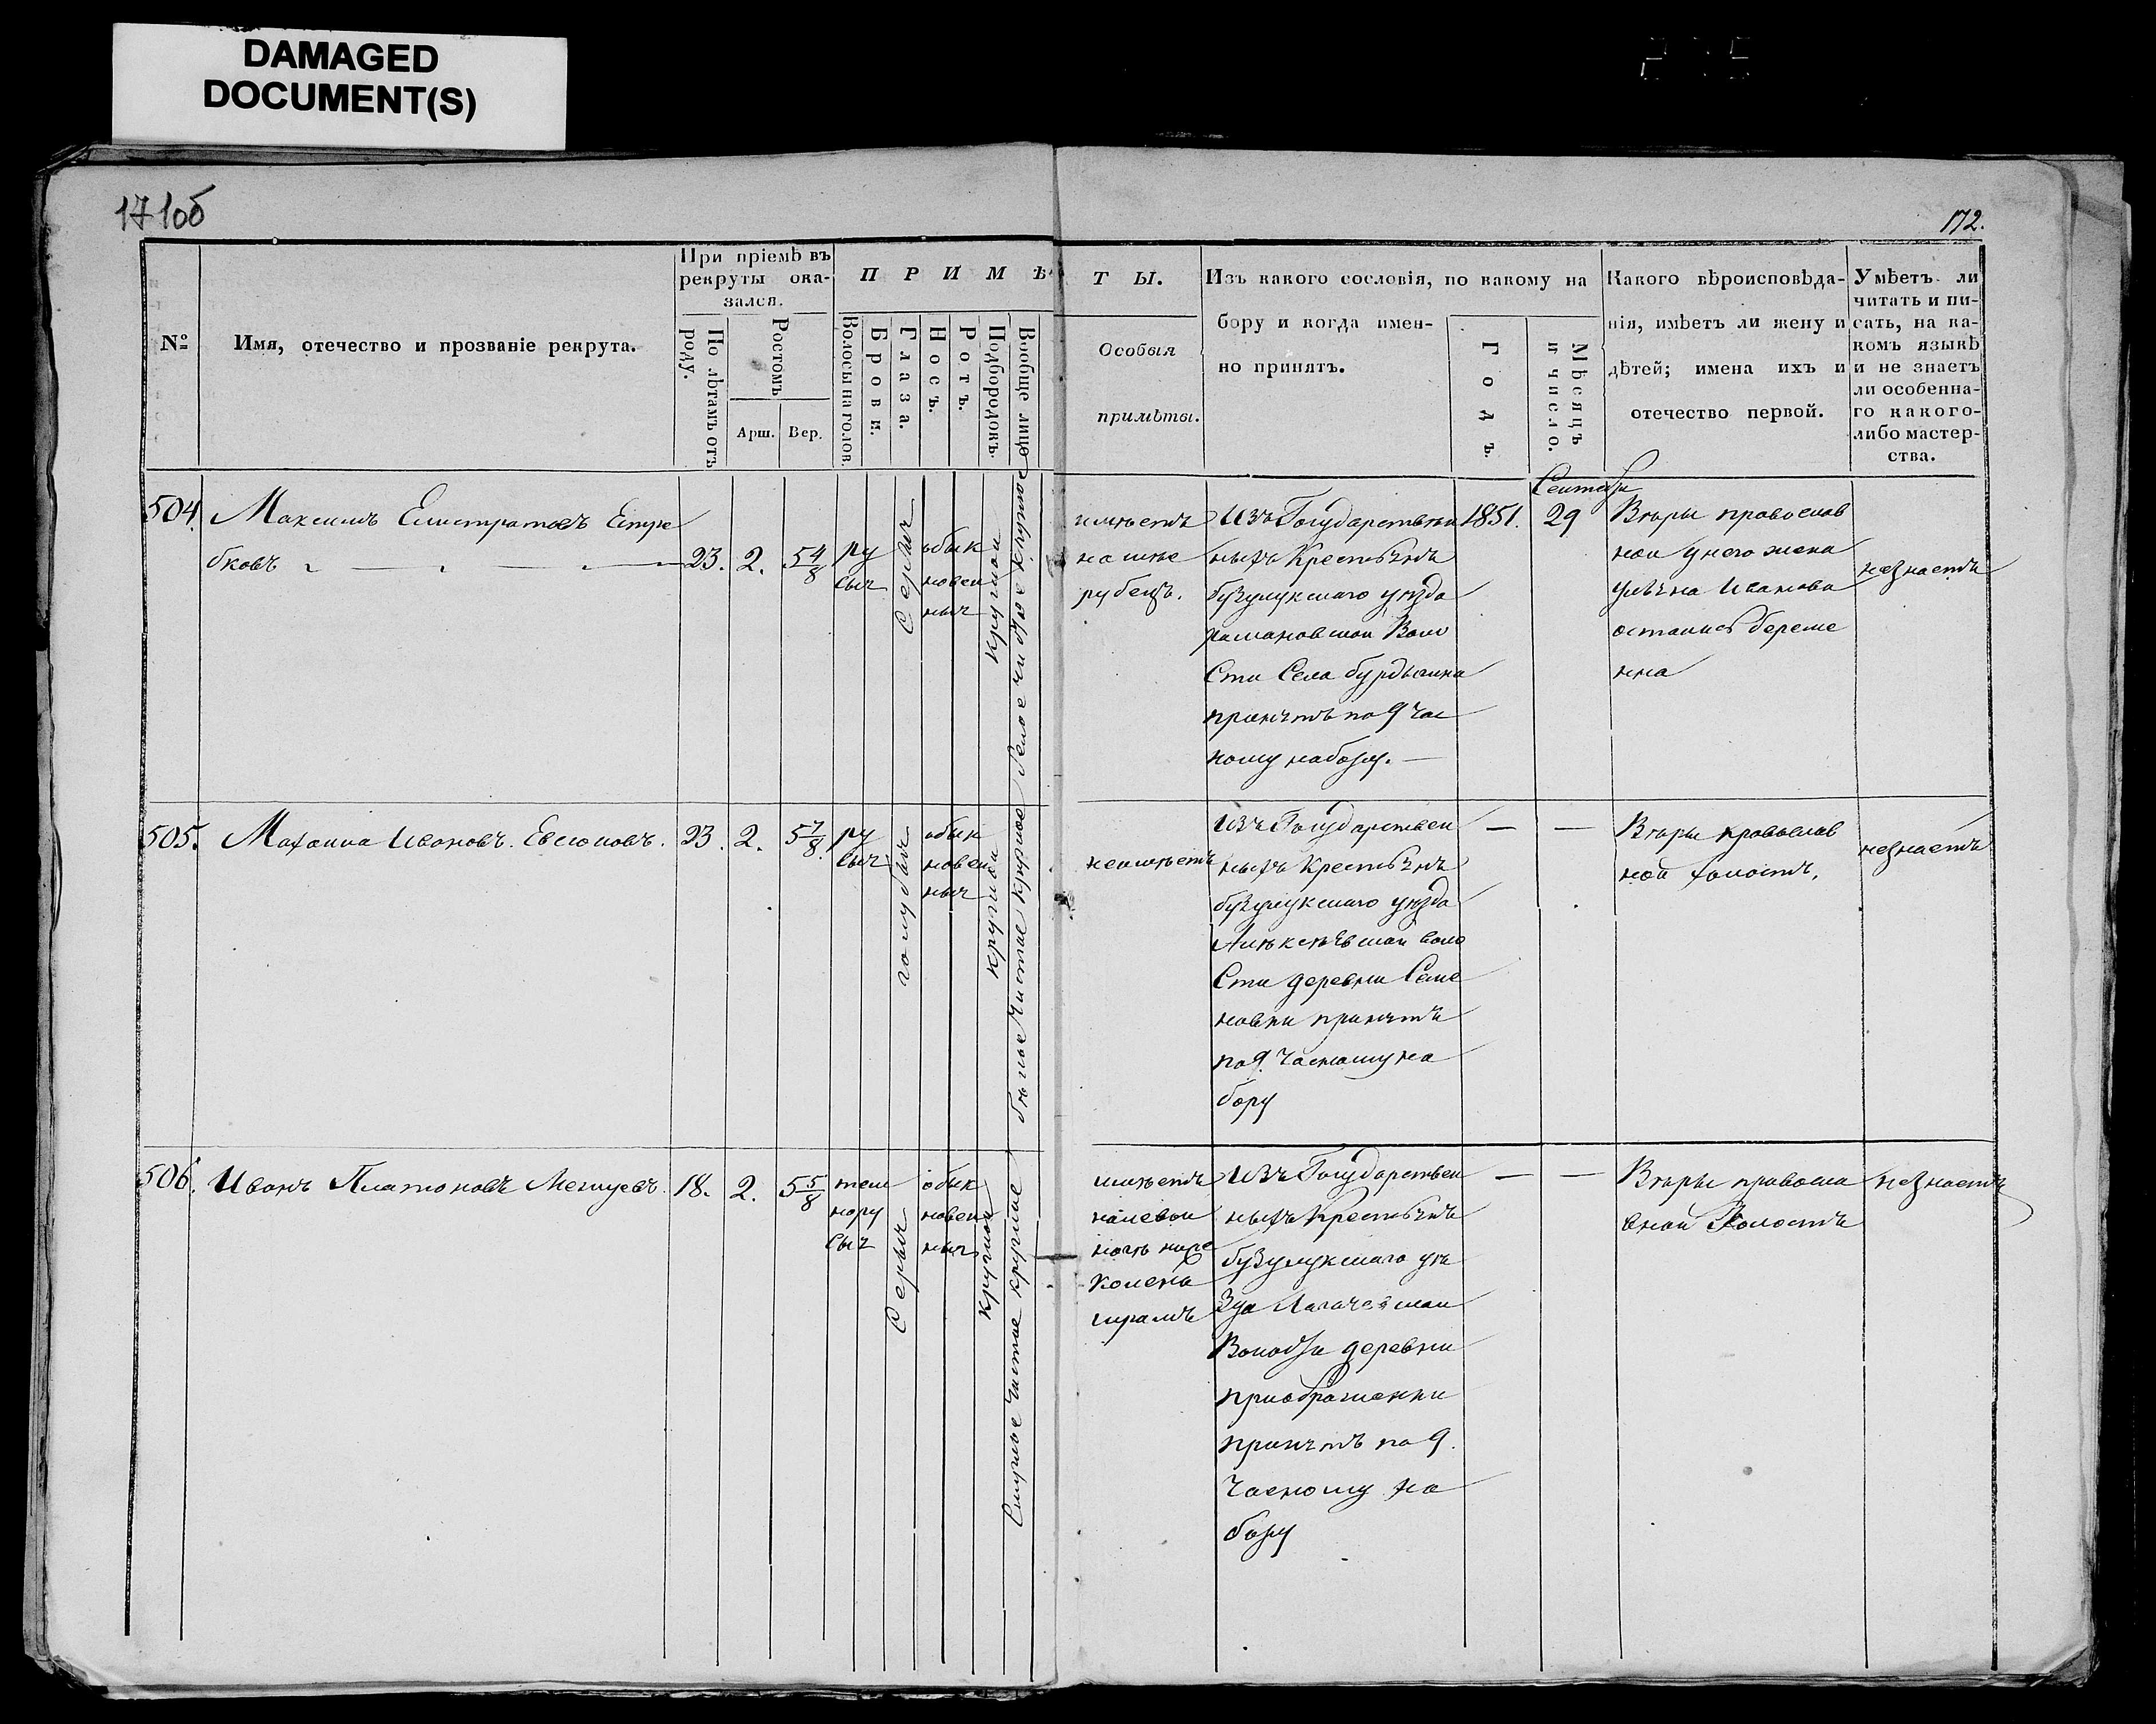 DAMAGED
DOCUMENT(S)
171об
172.
№
Имя, отечество и прозваніе рекрута.
При пріемѣ въ
рекруты ока-
зался.
По лѣтамъ отъ
роду.
Ростомъ
Арш.
Вер.
П Р И М Ѣ
Волосы на голов.
Брови.
Глаза.
Носъ.
Ротъ.
Подбородокъ.
Вообще лицо
Т Ы.
Особыя
примѣты.
Изъ какого сословія, по какому на
бору и когда имен-
но принятъ.
Годъ.
Мѣсяцъ
и число.
Какого вѣроисповѣда-
нія, имѣетъ ли жену и
дѣтей; имена ихъ и
отечество первой.
Умѣетъ ли
читать и пи-
сать, на ка-
комъ языкѣ
и не знаетъ
ли особенна-
го какого-
либо мастер-
ства.
504.
Максимъ Елистратовъ
бковъ
23.
2.
5 4/8
ру
сыя
Серыя
обык
новен
ныя
круглой
белое чистое круглое
имѣетъ
на шѣе
рубецъ.
Изъ Государствен
ныхъ Крестьянъ
бузулукскаго уѣзда
Воло
Сти Села
принятъ по 9 час
ному набору.
1851.
Сентября
29
Вѣры православ
ной у него жена
Ульяна Иванова
осталась береме
нна
незнаетъ
505.
Ивановъ
23.
2.
5 7/8
ру
сыя
голубыя
обык
новен
ныя
круглой
бѣлое чистое круглое
неимѣетъ
Изъ Государствен
ныхъ Крестьянъ
бузулукскаго уѣзда
воло
Сти деревни Семе
новки принятъ
по 9. частному на
бору
—
—
Вѣры православ
ной холостъ,
незнаетъ
506.
Иванъ Платоновъ
18.
2.
5 5/8
тем
нору
сыя
Серыя
обык
новен
ныя
круглой
Смуглое чистое круглое
имѣетъ
налевой
ногѣ ниже
колена
шрамъ
Изъ Государствен
ныхъ Крестьянъ
бузулукскаго уѣ
Зда
Волости деревни
принятъ по 9.
Часному на
бору
—
—
Вѣры правосла
вной Холостъ
незнаетъ